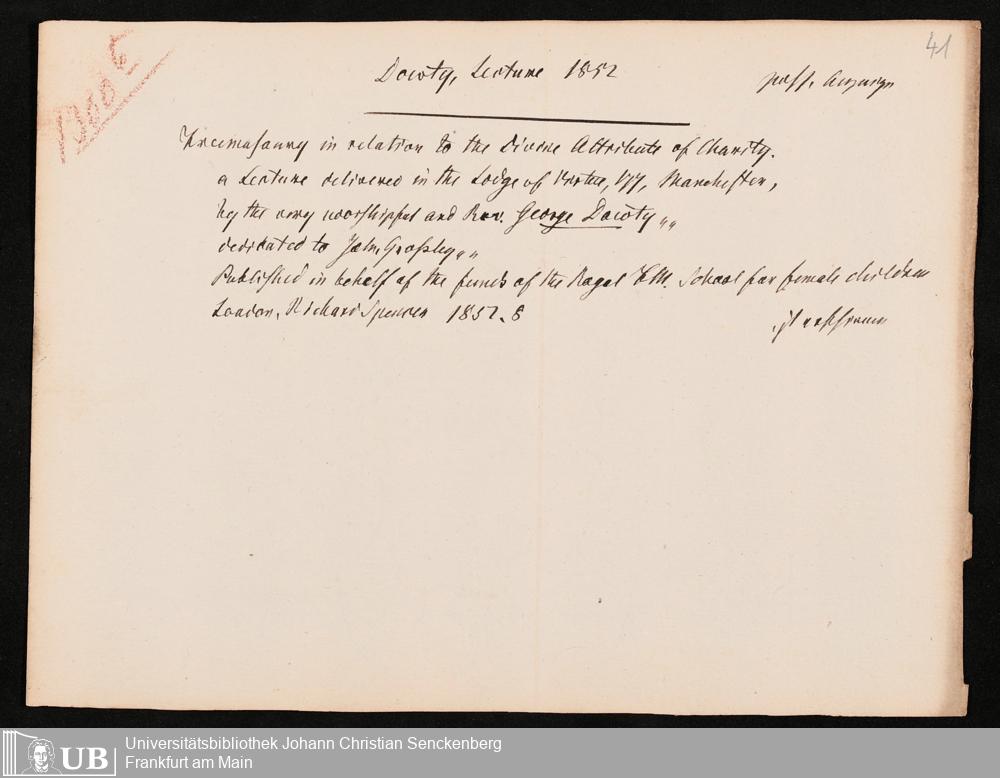 41
1300 E
Dowty, Lecture 1852
Freemasonry in relation to the Divine Attribute of Charity.
a Lecture delivered in the Lodge of Virtue, 177, Manchester,
by the very worshipful and Rev. George Dowty ,,
dedicated to John Crossley ,,
Published in behalf of the funds of the Royal F.M. School for female children
London, Richard Spencer 1852. 8
UB
Universitätsbibliothek Johann Christian Senckenberg
Frankfurt am Main